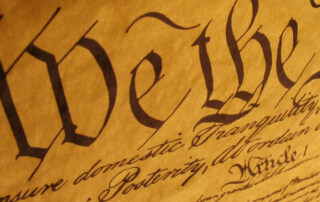 We the
nsure domestic Tranquility,
Posterity, do ordain
Article 1